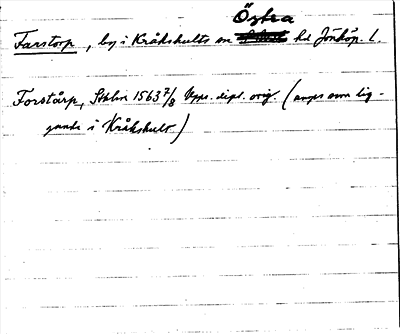 Östra
Farstorp, by i Kråkshults sn hd Jönköp. l.
Forstårp, Sthlm 1563 7/8 Upps. dipl. orig. (anges som lig-
gande i Kråkshult)